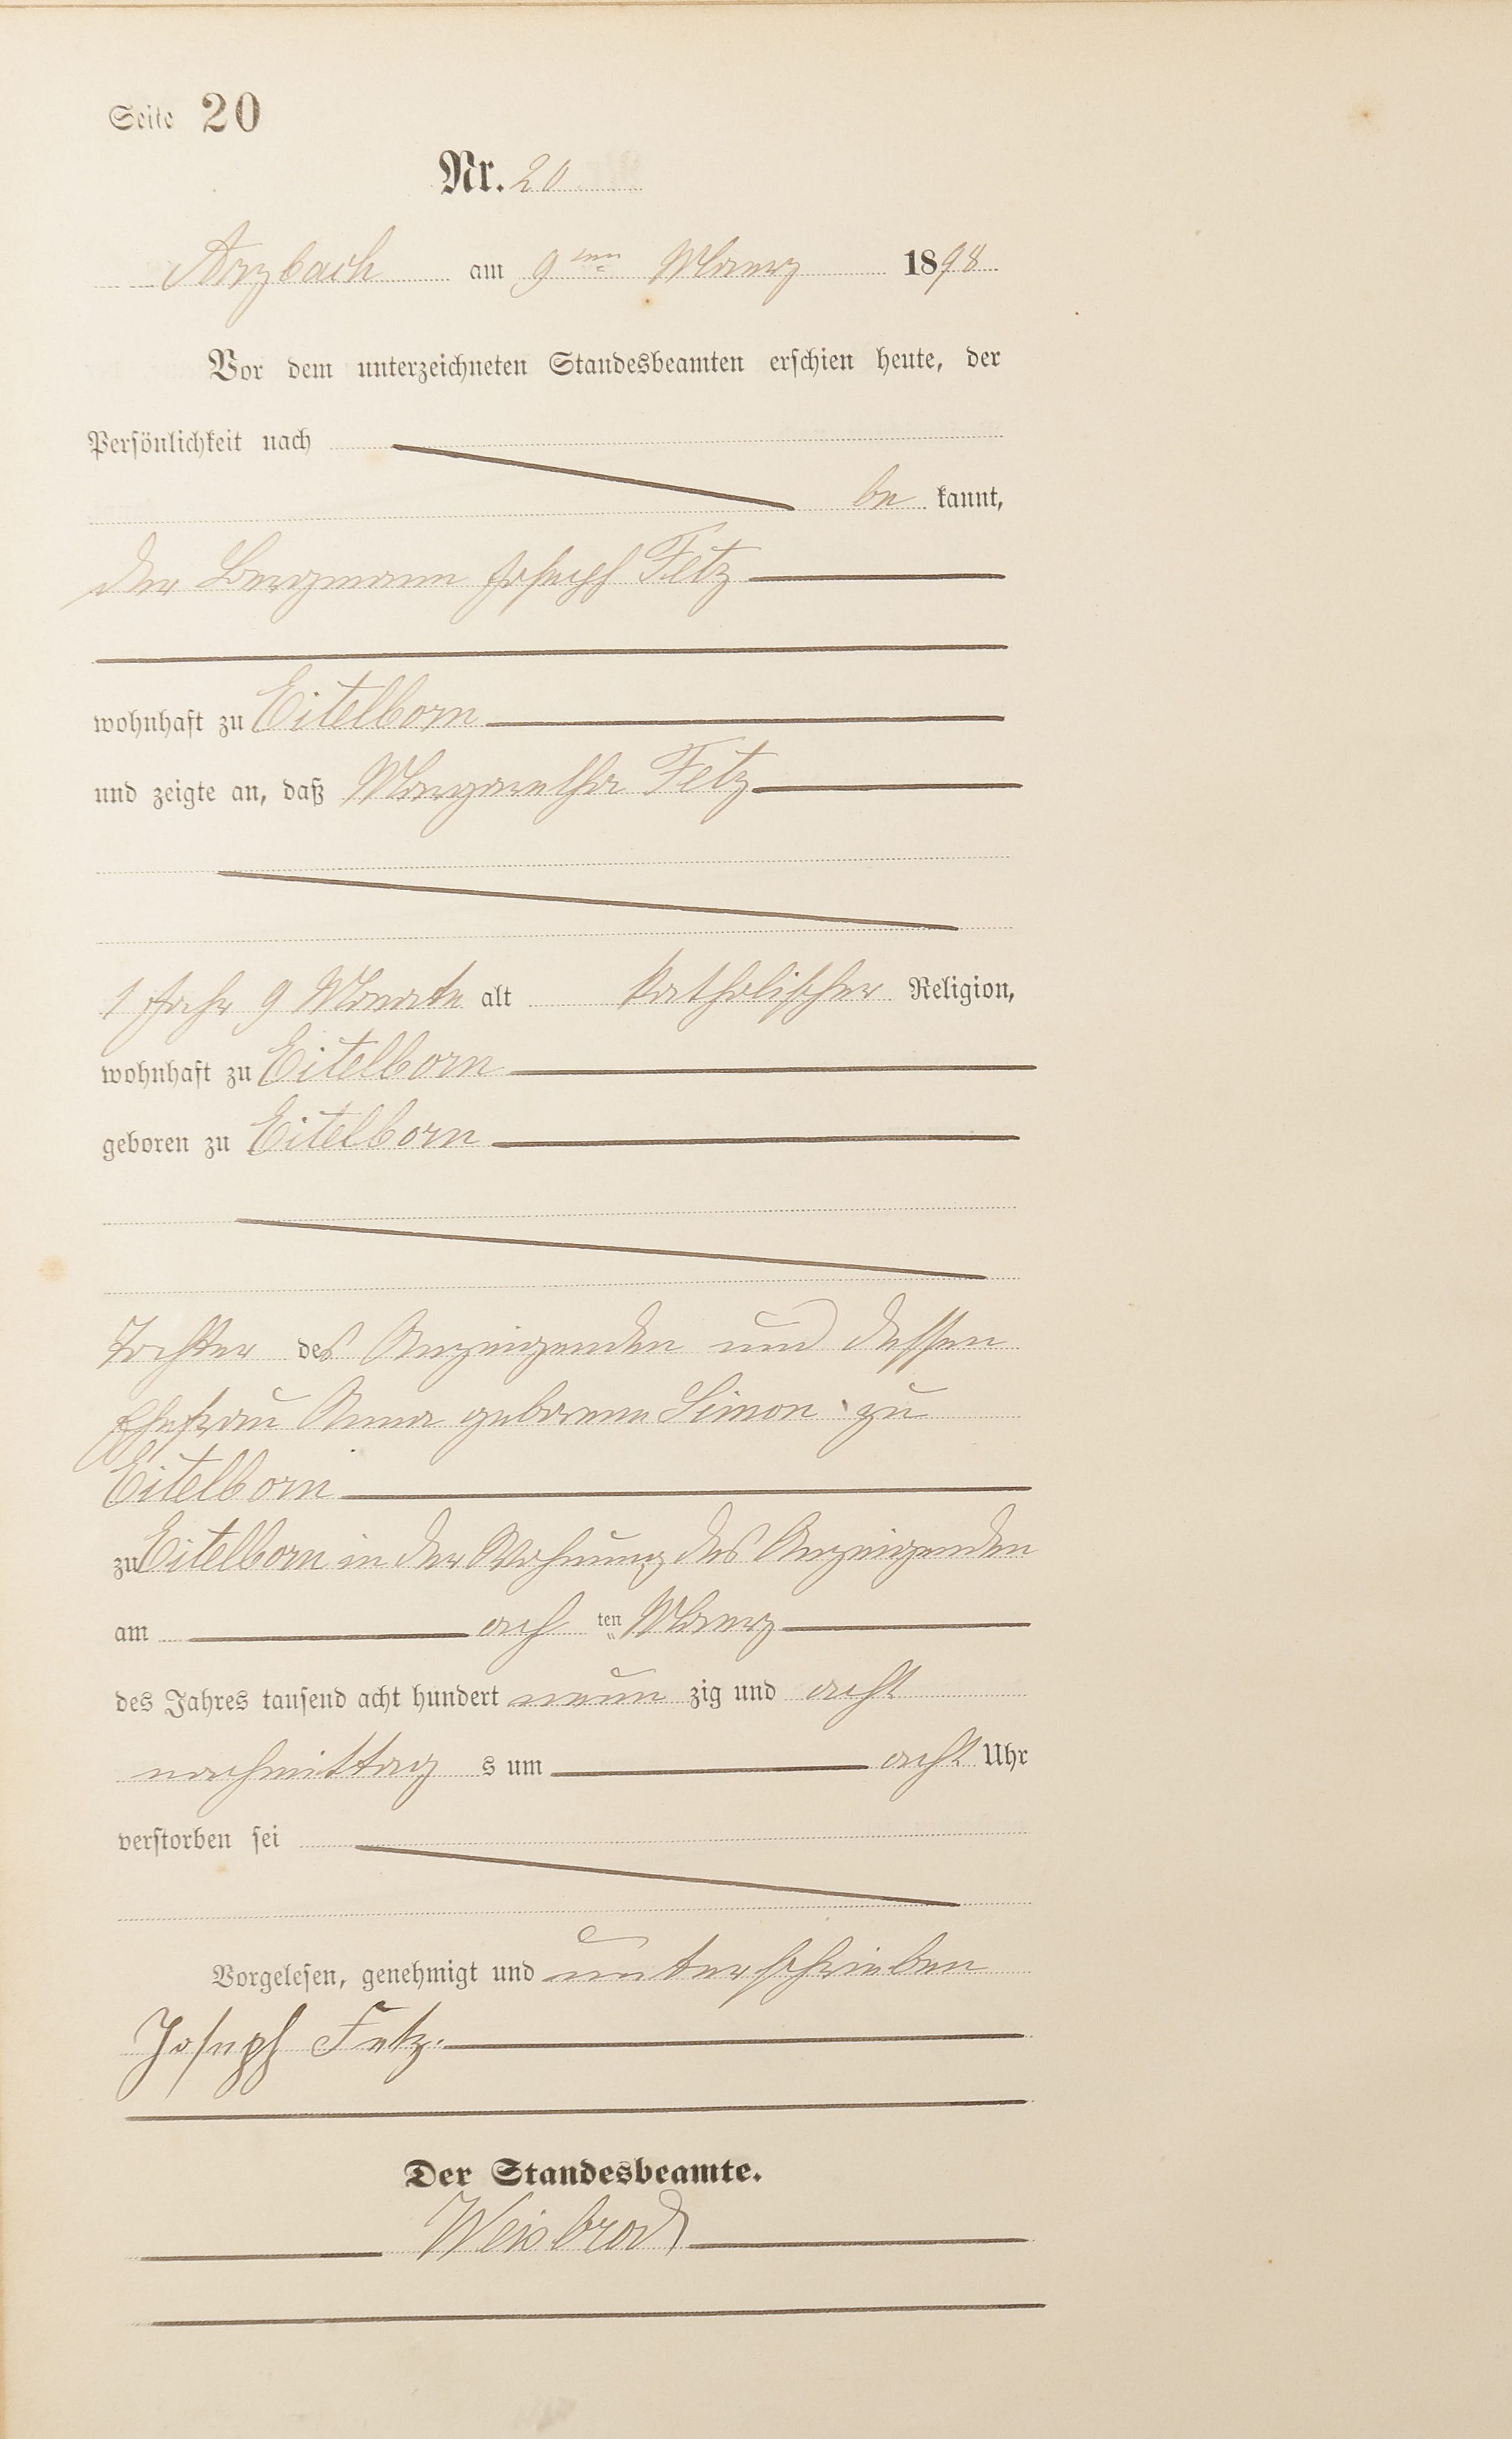 Seite 20
Nr. 20
Arzbach am 9ten Maerz 1898
Vor dem unterzeichneten Standesbeamten erschien heute, der
Persönlichkeit nach
be kannt,
der Bergmann Joseph Fetz
wohnhaft zu Eitelborn
und zeigte an, daß Margaretha Fetz
1 Jahr 9 Monate alt katholischer Religion,
wohnhaft zu Eitelborn
geboren zu Eitelborn
Tochter des Anzeigenden und dessen
Ehefrau Anna geborene Simon zu
Eitelborn
zu Eitelborn in der Wohnung des Anzeigenden
am ach ten Maerz
des Jahres tausend acht hundert neun zig und acht
nachmittag s um acht Uhr
verstorben sei
Vorgelesen, genehmigt und unterschrieben
Joseph Fetz.
Der Standesbeamte.
Weisbrod